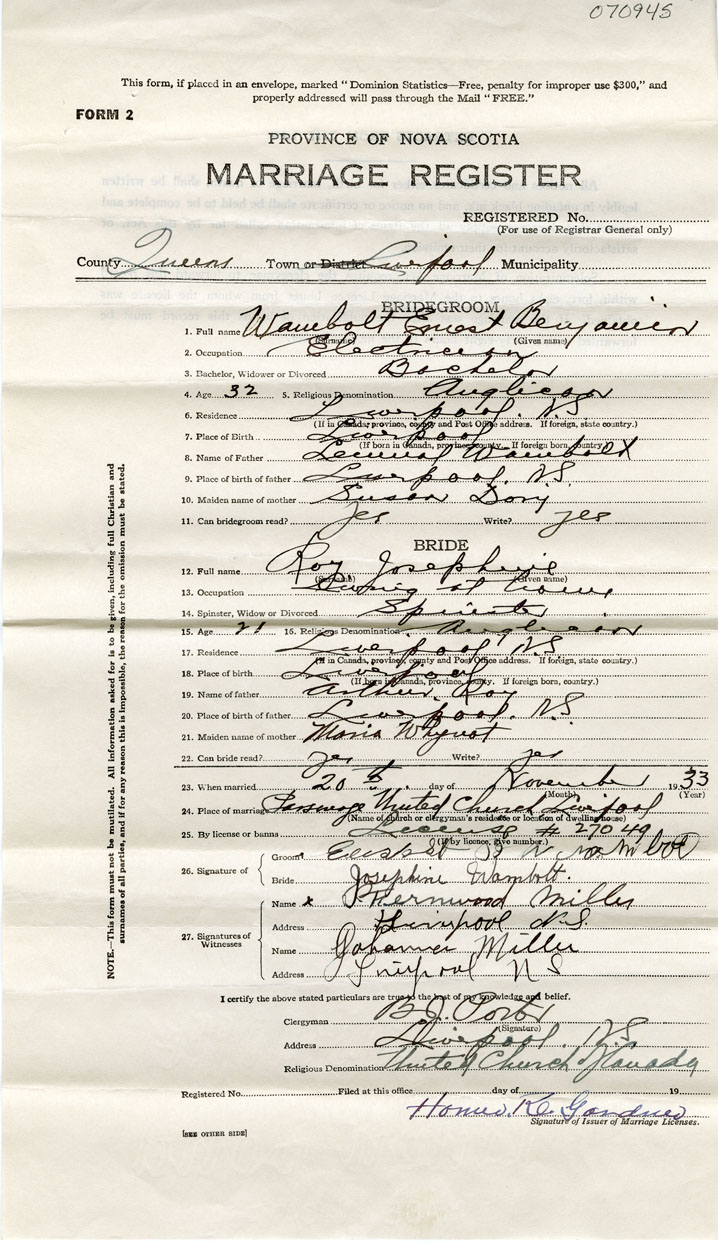 070945
This form, if placed in an envelope, marked “Dominion Statistics—Free, penalty for improper use $300,” and
properly addressed will pass through the Mail “FREE.”
FORM 2
PROVINCE OF NOVA SCOTIA
MARRIAGE REGISTER
REGISTERED No.
(For use of Registrar General only)
County Queens Town or District Liverpool Municipality
BRIDEGROOM
1. Full name Wambolt Ernest Benjamin
(Surname) (Given name)
2. Occupation Electrician
3. Bachelor, Widower or Divorced Bachelor
4. Age 32 5. Religious Denomination Anglican
6. Residence Liverpool. NS
(If in Canada, province, county and Post Office address. If foreign, state country.)
7. Place of Birth Liverpool
(If born in Canada, province, county. If foreign born, country.)
8. Name of Father Lemuel Wambolt
9. Place of birth of father Liverpool. NS.
10. Maiden name of mother Susan Dory
11. Can bridegroom read? yes Write? yes
BRIDE
12. Full name Roy Josephine
(Surname) (Given name)
13. Occupation Living at home
14. Spinster, Widow or Divorced Spinster
15. Age 21 16. Religious Denomination Anglican
17. Residence Liverpool NS
(If in Canada, province, county and Post Office address. If foreign, state country.)
18. Place of birth Liverpool
(If born in Canada, province, county. If foreign born, country.)
19. Name of father Arthur Roy
20. Place of birth of father Liverpool. NS
21. Maiden name of mother Maria Whynot
22. Can bride read? yes Write? yes
23. When married 20th day of November 1933
(Month) (Year)
24. Place of marriage Parsonage United Church Liverpool
(Name of church or clergyman's residence or location of dwelling house)
25. By license or banns License # 27049
(If by licence, give number.)
26. Signature of
Groom Wambolt
Bride Josephine Wambolt.
27. Signatures of Witnesses
Name x Fernwood Miller
Address Liverpool N.S.
Name Johanna Miller
Address Liverpool NS
I certify the above stated particulars are true to the best of my knowledge and belief.
Clergyman B.J. Porter
(Signature)
Address Liverpool. NS
Religious Denomination United Church of Canada
Registered No. Filed at this office day of 19
Homer K. Gardner
Signature of Issuer of Marriage Licenses.
[SEE OTHER SIDE]
NOTE.—This form must not be mutilated. All information asked for is to be given, including full Christian and
surnames of all parties, and if for any reason this is impossible, the reason for the omission must be stated.